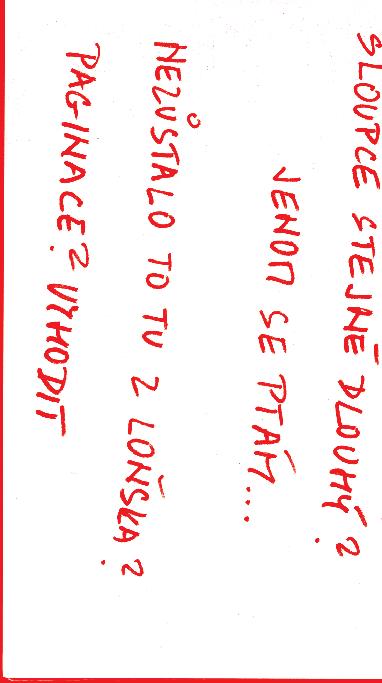 SLOUPCE STEJNĚ DLOUHÝ?
JENOM SE PTÁM...
NEZŮSTALO TO TU Z LOŇSKA?
PAGINACE? VYHODIT